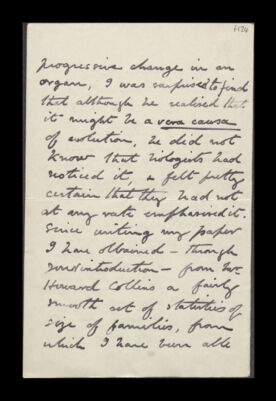 6124
progressive change in an
organ, I was surprised to find
that although he realised that
it might be a vera causa
of evolution, he did not
know that biologists had
noticed it, & felt pretty
certain that they had not
at any rate emphasised it.
Since writing my paper
I have obtained – through
your introduction – from Mr.
Howard Collins a fairly
smooth set of statistics of
size of families, from
which I have been able